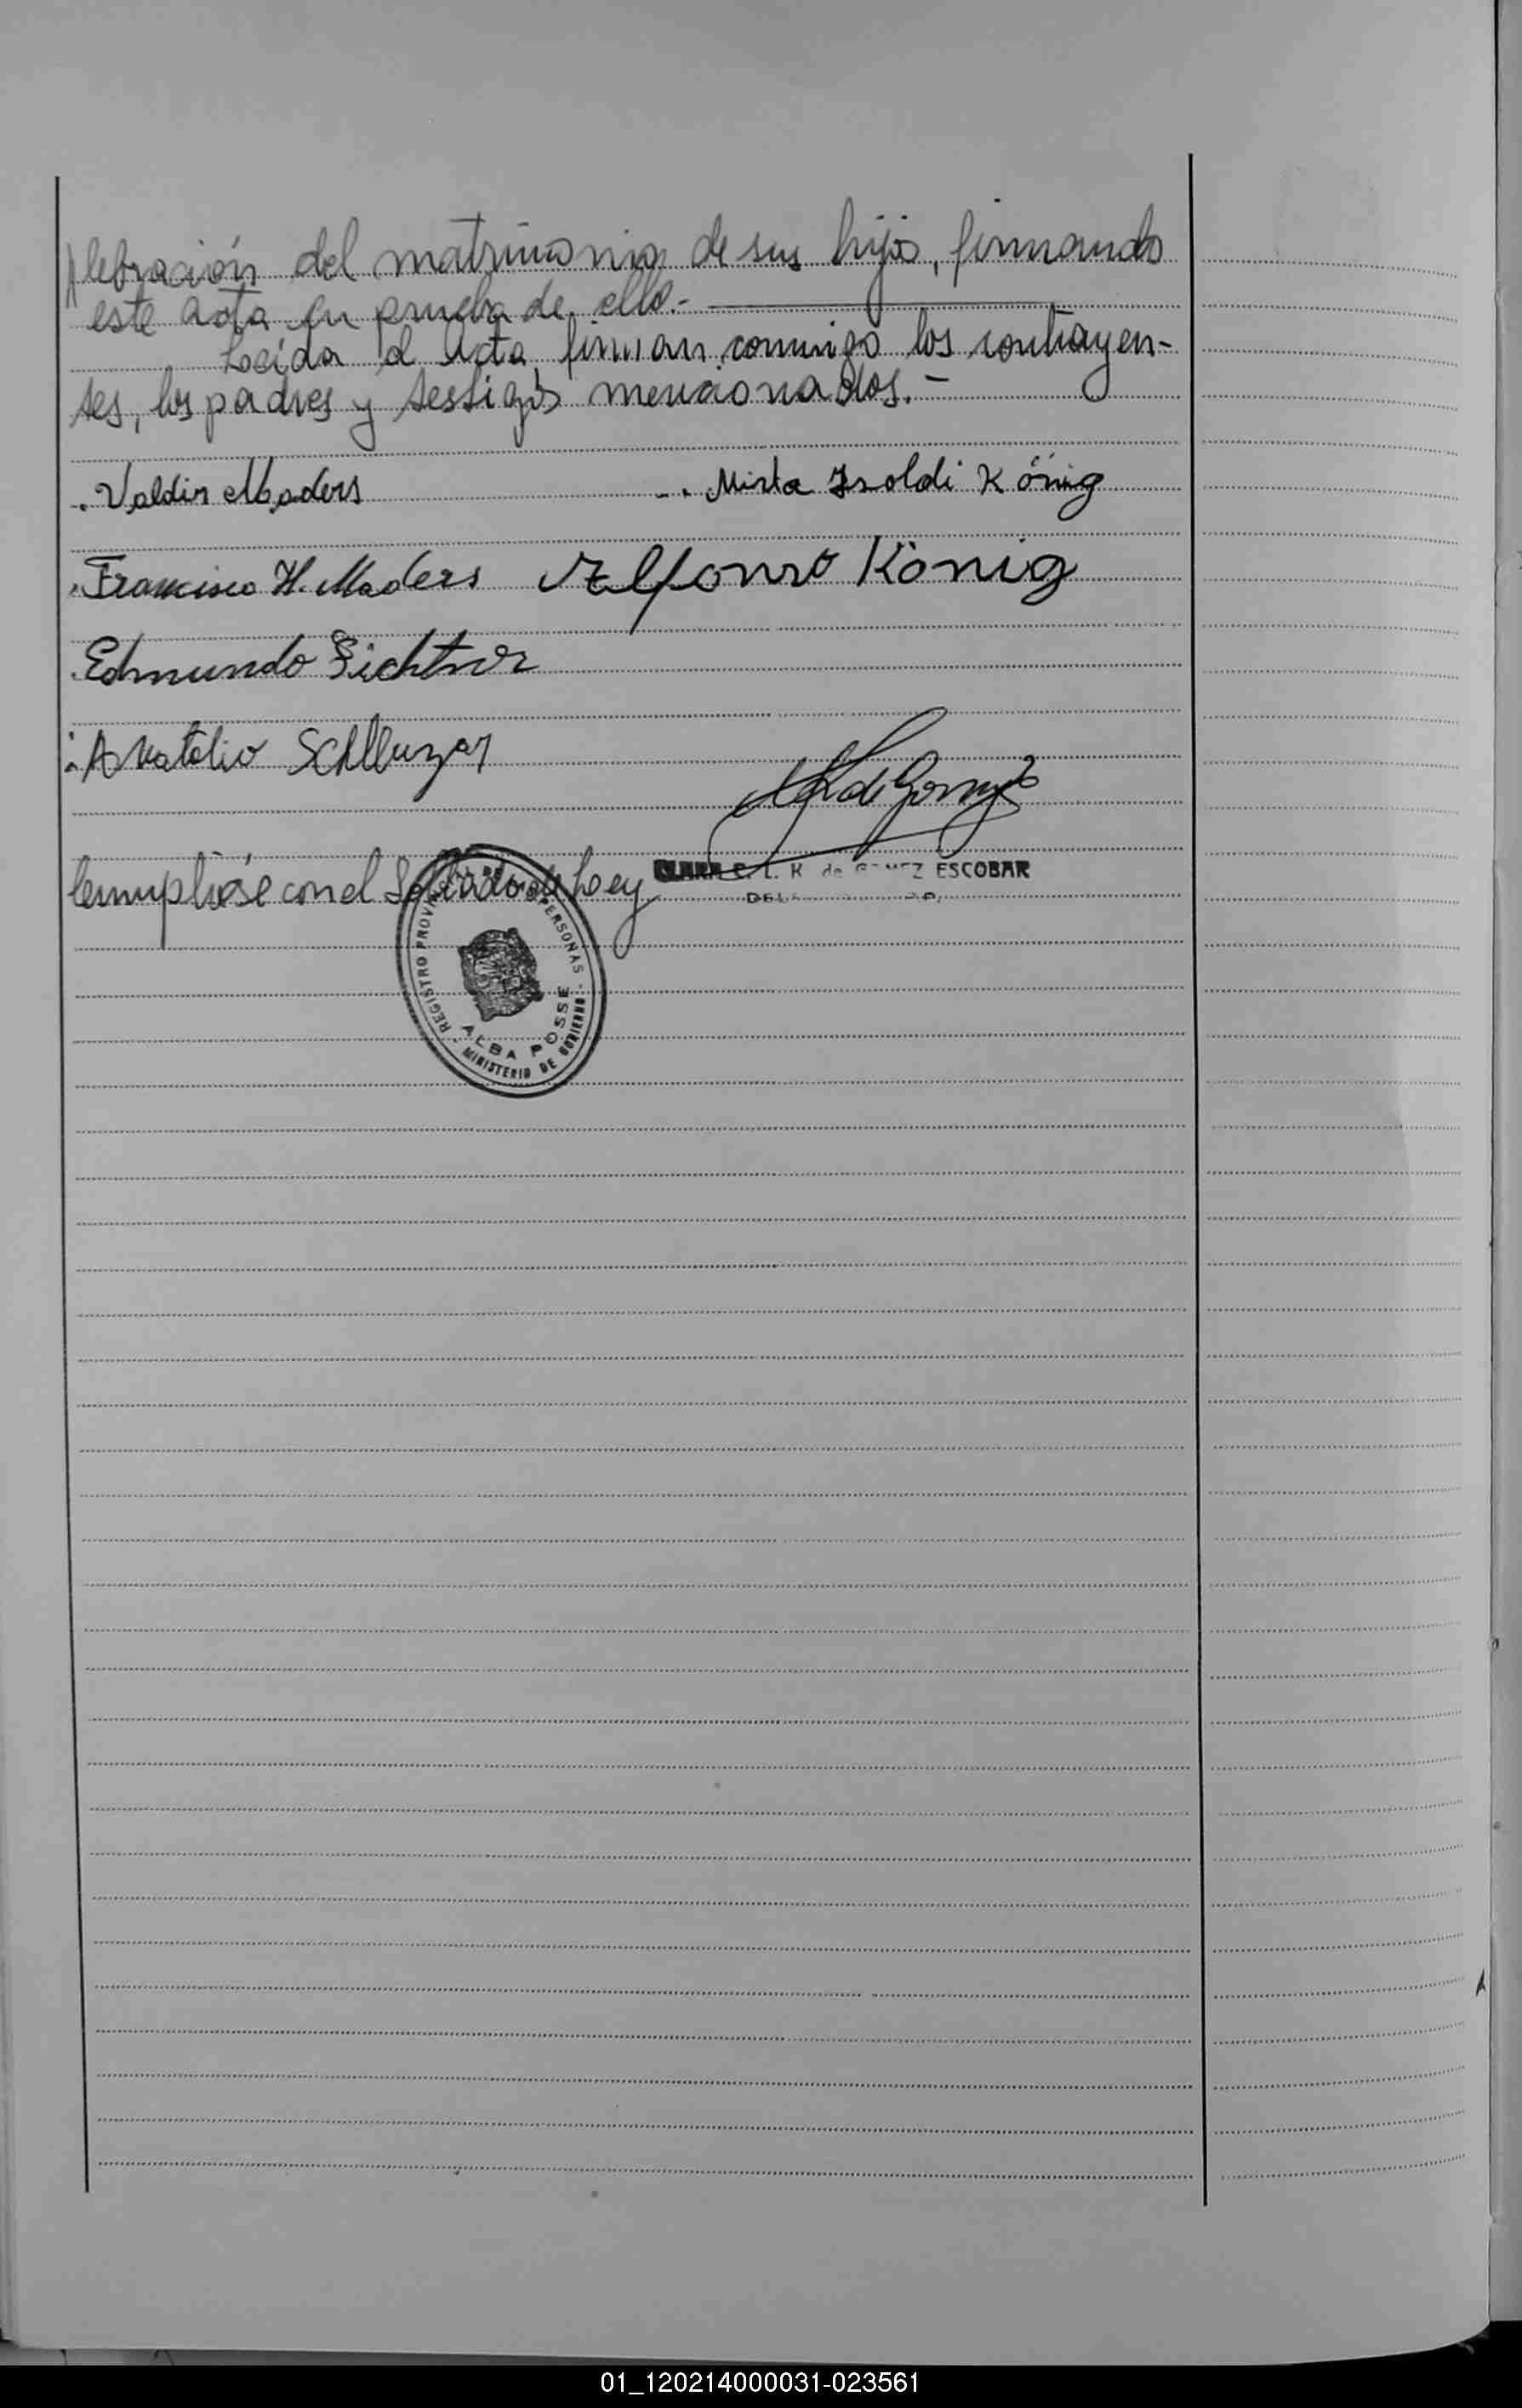 lebración del matrimonio de sus hijos, firmando
este acta en prueba de ello.-
Leída el Acta, firman conmigo los contrayen-
tes, los padres y testigos mencionados.-
Valdir Maders Mirta Isoldi König
Francisco H. Maders Alfonso König
Edmundo
Anatolio
de
CLARA E. L. R. de GOMEZ ESCOBAR
Cumplióse con el Sellado de Ley
REGISTRO PERSONAS
ALBA POSSE
MINISTERIO DE GOBIERNO
01_120214000031-023561